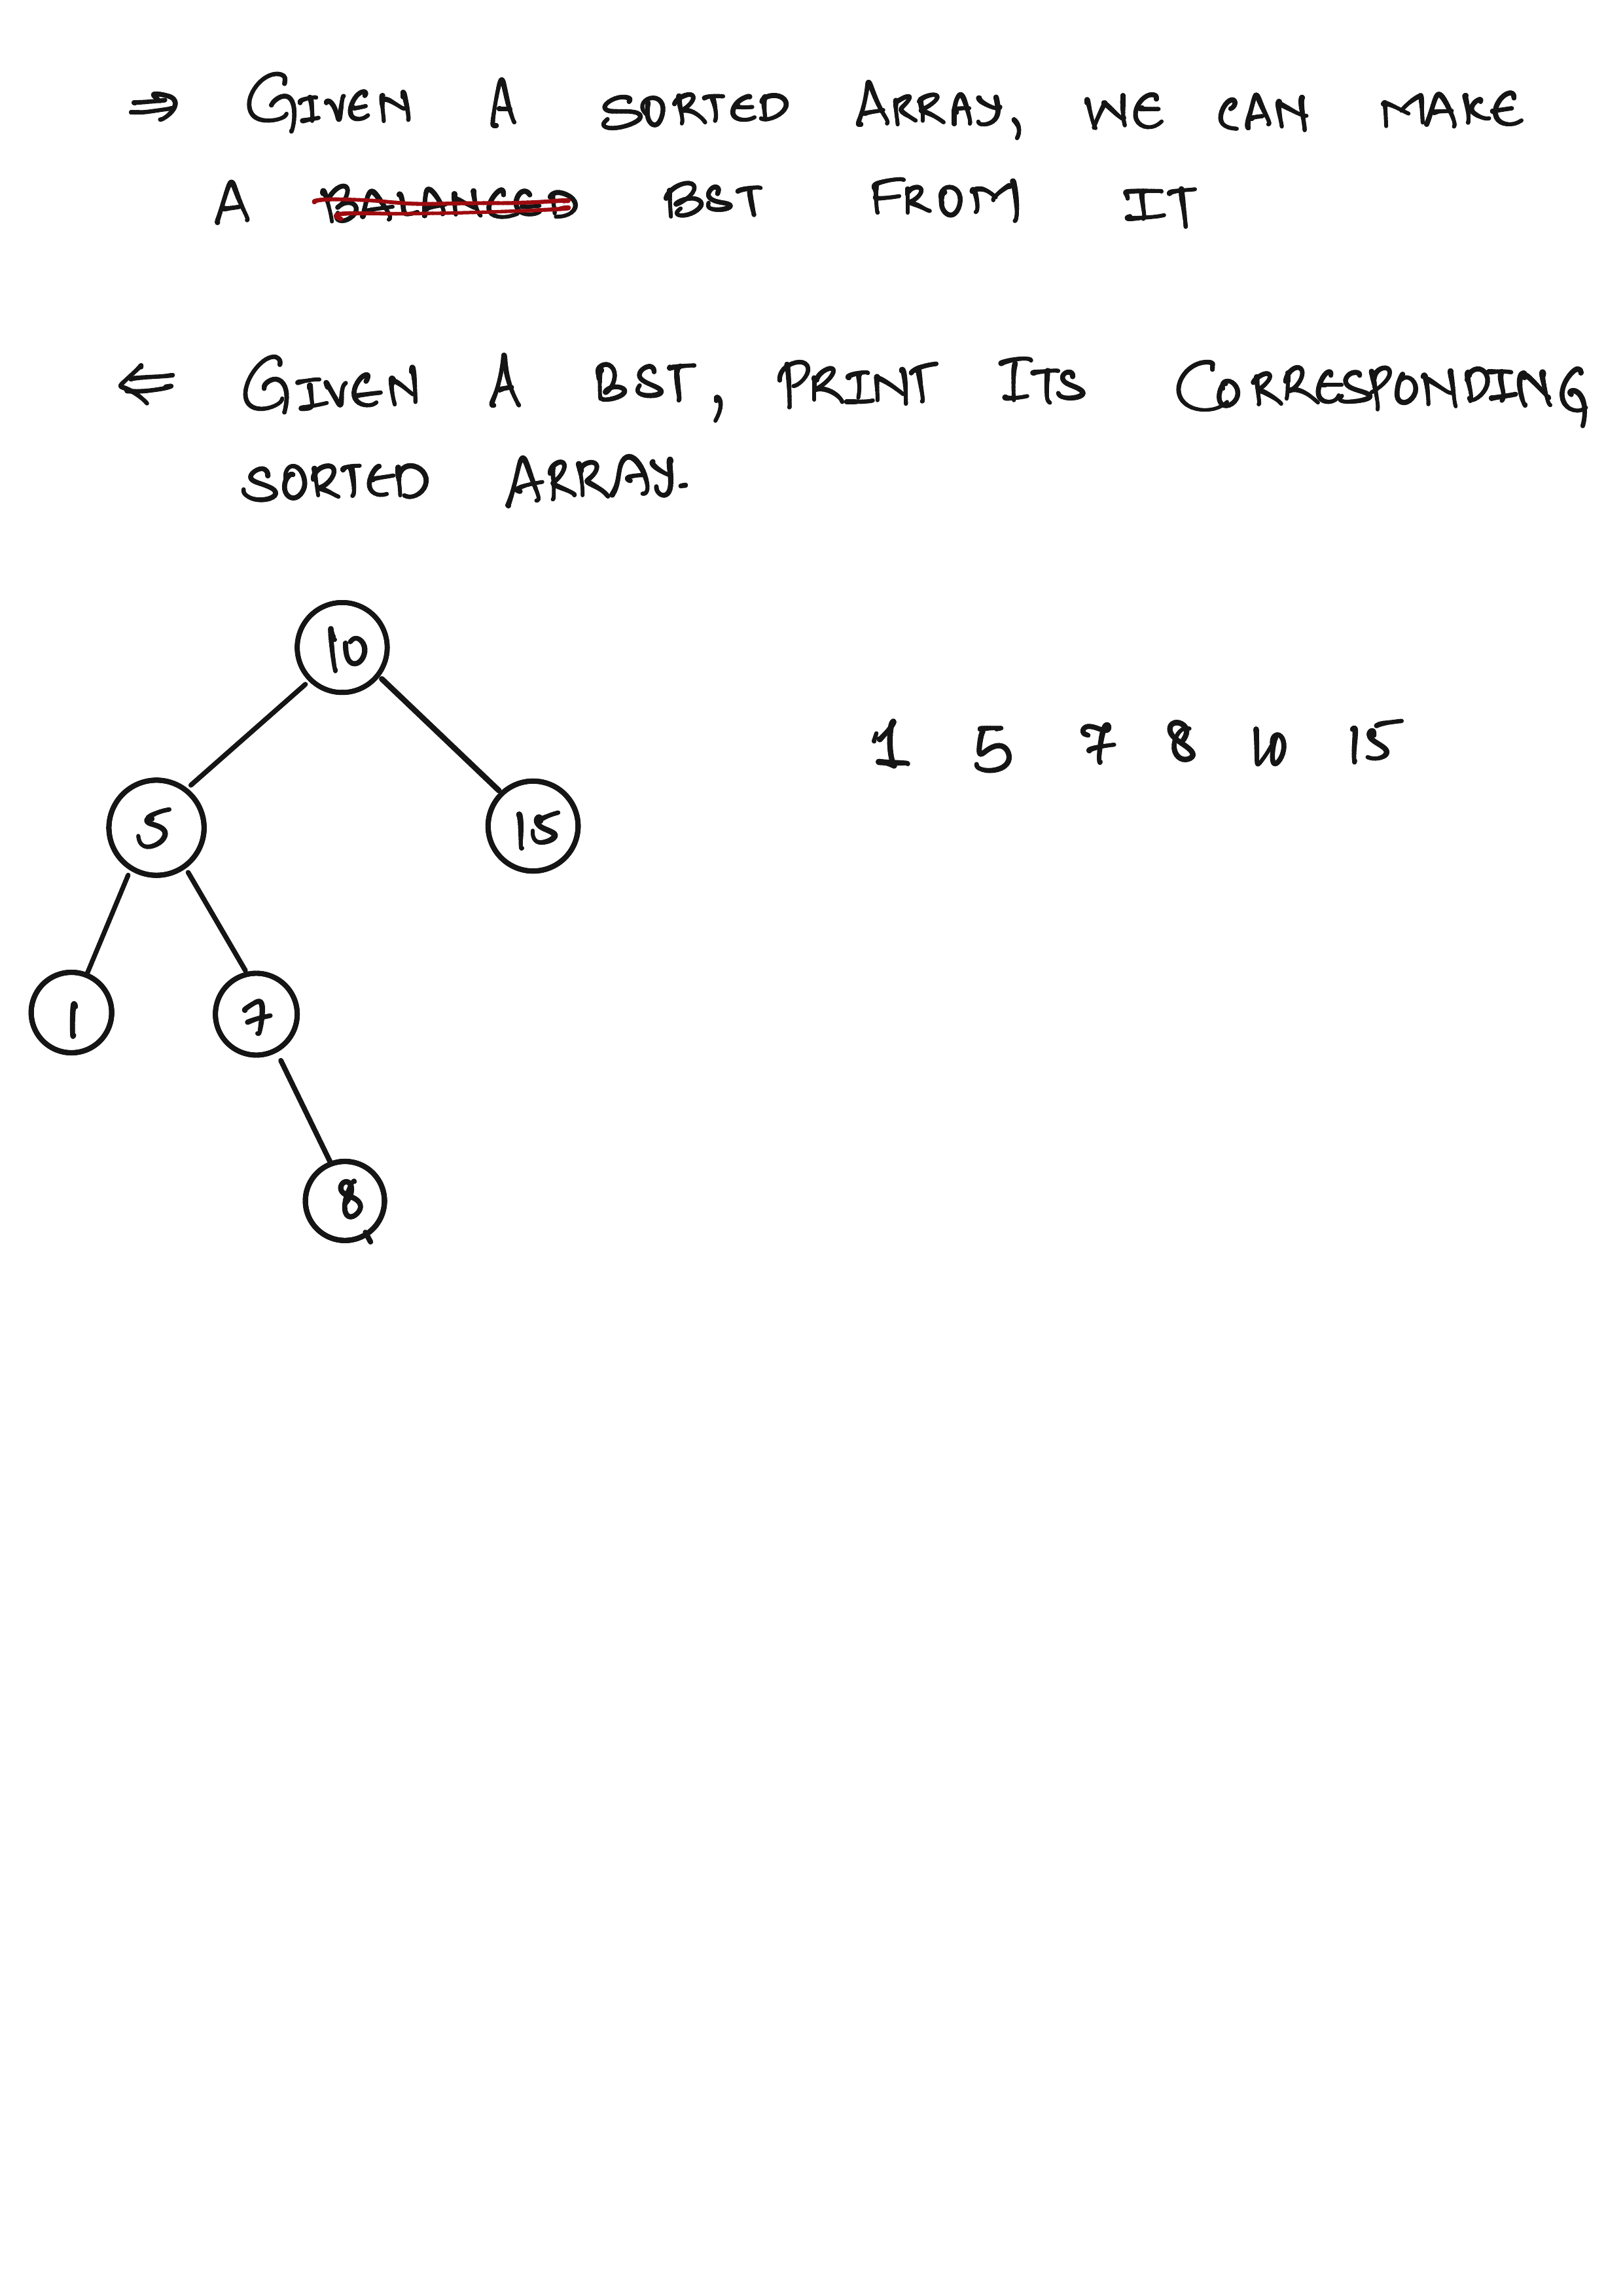 ⇒ GIVEN A SORTED ARRAY, WE CAN MAKE
A BALANCED BST FROM IT
⇐ GIVEN A BST, PRINT ITS CORRESPONDING
SORTED ARRAY.
10
1 5 7 8 10 15
5 15
1 7
8